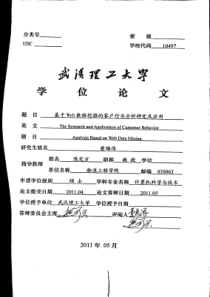 分类号 密 级
UDC 学校代码 10497
武汉理工大学
学 位 论 文
题 目 基于Web数据挖掘的客户行为分析研究及应用
英 文 The Research and Application of Customer Behavior
题 目 Analysis Based on Web Data Mining
研究生姓名
指导教师 姓名 职称 教 授 学位
单位名称 邮编 430063
申请学位级别 硕 士 学科专业名称 计算机科学与技术
论文提交日期 2011.04 论文答辩日期 2011.05
学位授予单位 武汉理工大学 学位授予日期
答辩委员会主席 评阅人
2011 年 05 月